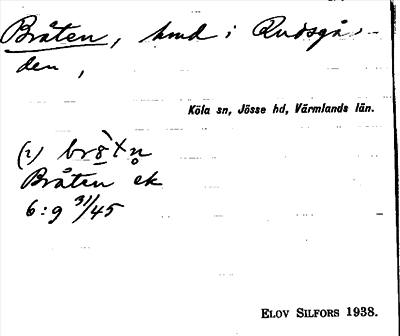 Bråten, hmd i Rudsgår-
den,
Köla sn, Jösse hd, Värmlands län.
(r)
Bråten ek
6:9 31/45
ELOV SILFORS 1938.